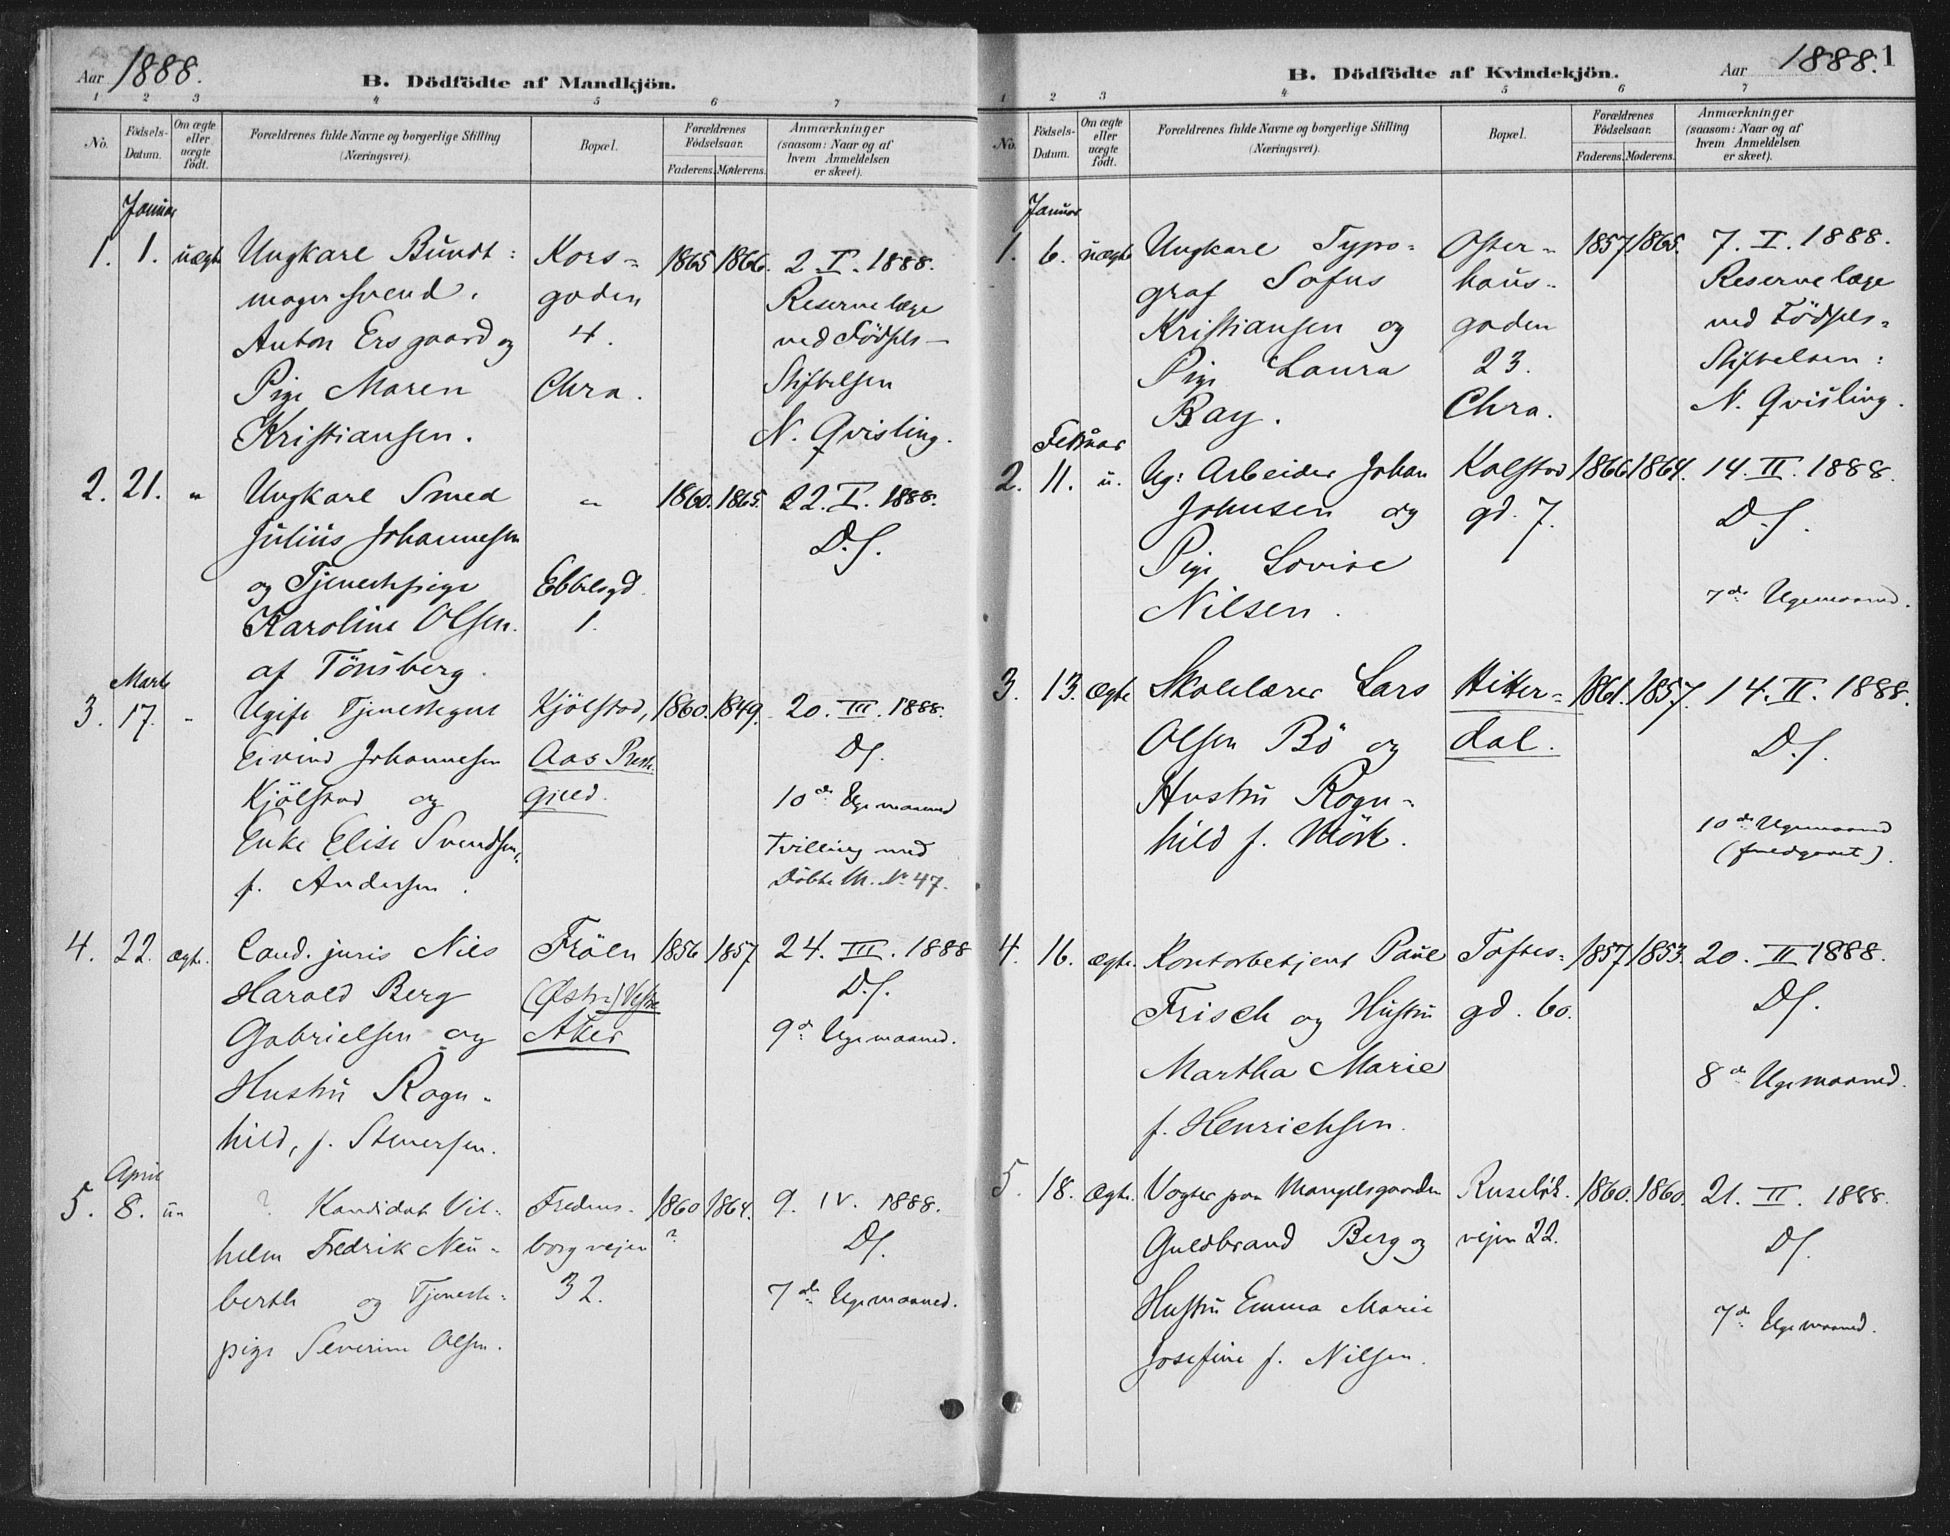 Aar 1888.
B. Dödfödte af Mandkjön.
1 2 3 4 5 6 7
No.
Födsels-
Datum.
Om ægte
eller
uægte
födt.
Forældrenes fulde Navne og borgerlige Stilling
(Næringsvei).
Bopæl.
Forældrenes
Födselsaar.
Faderens. Moderens.
Anmærkninger
(saasom: Naar og af
hvem Anmeldelsen
er skeet).
Januar
1. 1. uægte Ungkarl Bundt: Kors- 1865 1866. 2. I. 1888.
mager Svend gaden Reservelæge
Anton Ersgaard og 4. ved Fødsels-
Pige Maren Chra. Stiftelsen
Kristiansen. N. Qvisling.
2. 21. " Ungkarl Smed " 1860. 1865. 22. I. 1888.
Julius Johannesen D.S.
og Tjenestepige Ebbelsgd.
Karoline Olsen. 1.
af Tönsberg.
Marts
3. 17. " Ugift Tjenestegut Kjölstad, 1860. 1849. 20. III. 1888.
Eivind Johannesen Aas Præste- DS.
Kjölstad og gjeld. 10de Ugemaaned
Enke Elise Svendsen, Tvilling med
f. Andersen. Döbte M. No 47.
4. 22. ægte. Cand. juris Nils Fröen 1856 1857 24. III. 1888
Harald Berg (Østre) Vestre D.S.
Gabrielsen og Aker 9de Ugemaaned.
Hustru Ragn-
hild, f. Stenersen.
April
5. 8. u- ? Kandidat Vil- Fredens- 1860 1864. 9. IV. 1888.
helm Fredrik Neu- borgveien ? DS.
berth og Tjeneste- 32. 7de Ugemaaned.
pige Severine Olsen.
B. Dödfödte af Kvindekjön.
Aar 1888.
1
1 2 3 4 5 6 7
No.
Födsels-
Datum.
Om ægte
eller
uægte
födt.
Forældrenes fulde Navne og borgerlige Stilling
(Næringsvei).
Bopæl.
Forældrenes
Födselsaar.
Faderens. Moderens.
Anmærkninger
(saasom: Naar og af
hvem Anmeldelsen
er skeet).
Januar
1. 6. uægte Ungkarl Typo- Oster- 1857 1865. 7. I. 1888.
graf Sofus haus- Reservelæge
Kristiansen og gaden ved Födsels-
Pige Laura 23. Stiftelsen:
Bay. Chra. N. Qvisling.
Februar
2. 11. u. Ug: Arbeider Johan Kalstad 1866 1864. 14. II. 1888.
Johnsen og gd. 7. D.S.
Pige Lovise
Nilsen. 7de Ugemaaned.
3. 13. ægte Skolelærer Lars Hitter- 1861. 1857. 14. II. 1888.
Olsen Bö og dal. D.S.
Hustru Ragn-
hild f. Mörk. 10de Ugemaaned
(fuldgaaet).
4. 16. ægte. Kontorbetjent Paul Toftes- 1857 1853. 20. II 1888.
Frisch og Hustru gd. 60. DS.
Martha Marie 8de Ugemaaned.
f. Henrichsen.
5. 18. ægte. Vogter paa Mangelsgaarden Ruselök- 1860. 1860. 21. II. 1888.
Guldbrand Berg og veien 22. DS.
Hustru Emma Marie 7de Ugemaaned.
Josefine f. Nilsen.